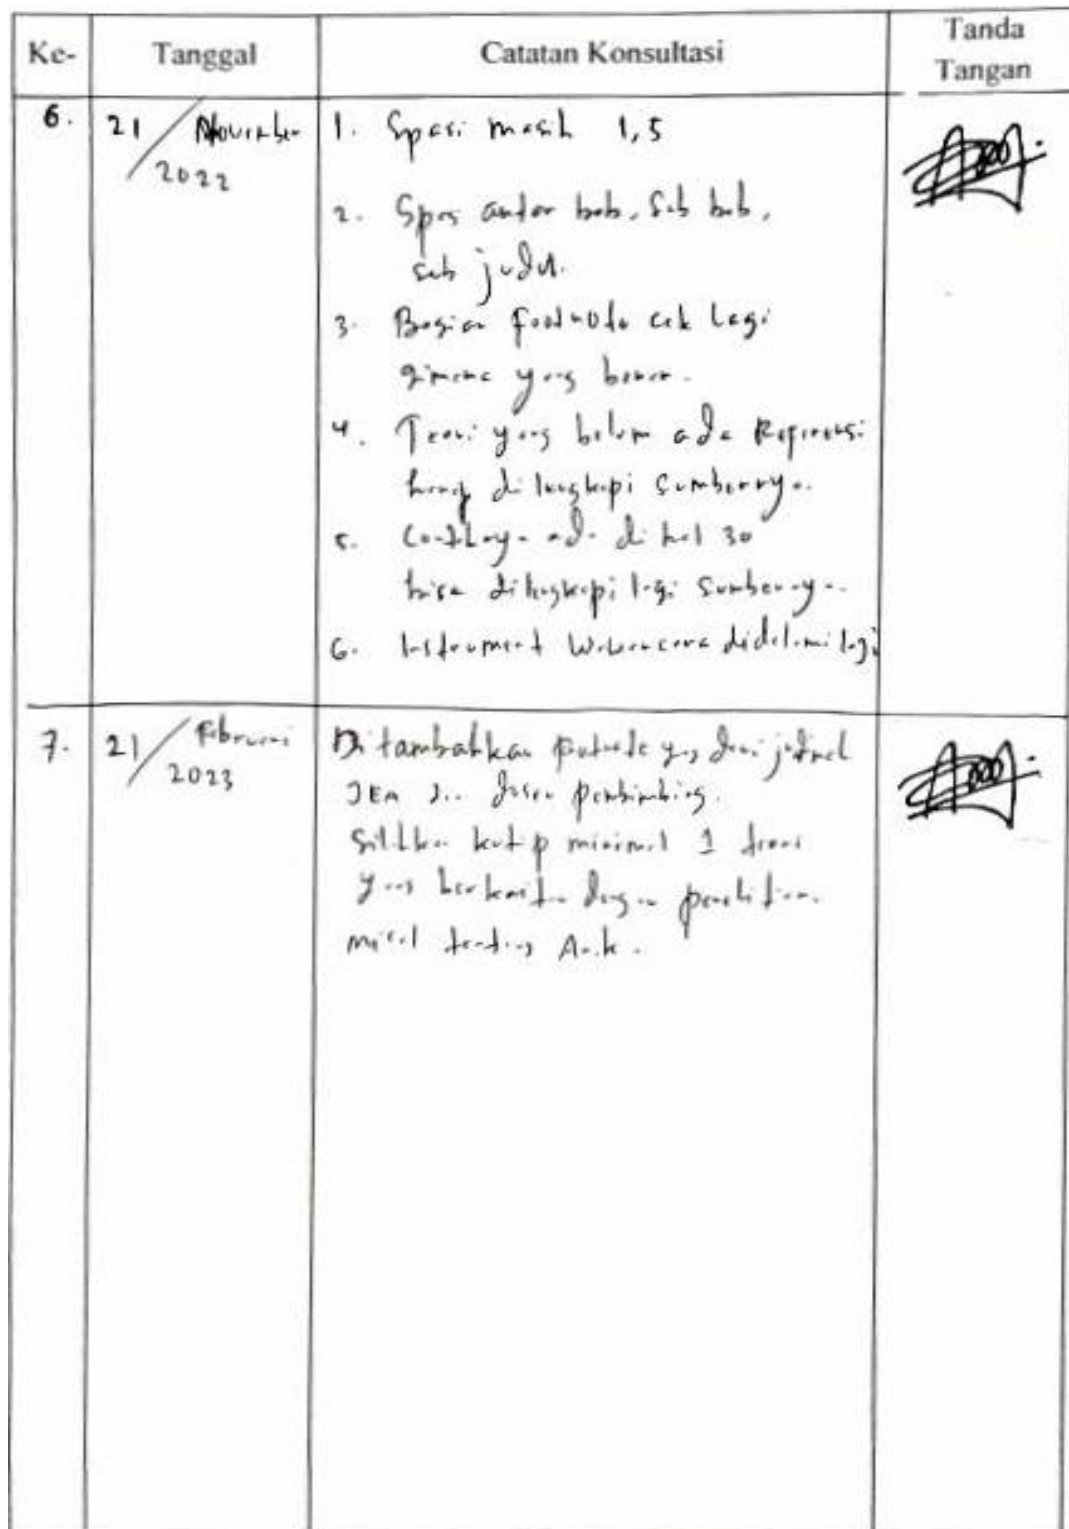 Ke-
Tanggal
Catatan Konsultasi
Tanda
Tangan
6.
21 / November
2022
1. Spasi masih 1,5
2. Spasi antar bab, Sub bab,
sub judul.
3. Bagian footnote cek lagi
gimana yang benar.
4. Teori yang belum ada Referensi
di lengkapi sumbernya.
5. Contohnya ada di hal 30
bisa dilengkapi lagi sumbernya.
6. Instrument Wawancara didalami lagi
7. 21 / Februari
2023
Ditambahkan yang dari
dosen pembimbing.
Silahkan kutip minimal 1 teori
yang berkaitan dengan penelitian.
misal tentang Anak.